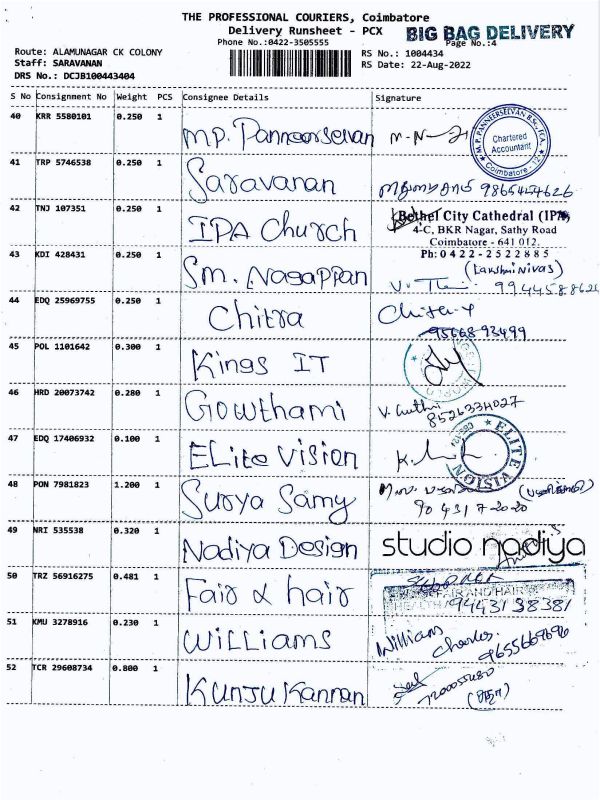 THE PROFESSIONAL COURIERS, Coimbatore
Delivery Runsheet - PCX
BIG BAG DELIVERY
Phone No.:0422-3505555
Page No.:4
Route: ALAMUNAGAR CK COLONY
RS No.: 1004434
Staff: SARAVANAN
RS Date: 22-Aug-2022
DRS No.: DCJB100443404
S No Consignment No Weight PCS Consignee Details Signature
40 KRR 5580101 0.250 1 M.P. Panneerselvan
M.P. PANNEERSELVAN B.Sc, FCA.
Chartered
Accountant
Coimbatore - 12
41 TRP 5746538 0.250 1 Saravanan 9865454626
42 TNJ 107351 0.250 1 IPA Church
Bethel City Cathedral (IPA)
4-C, BKR Nagar, Sathy Road
Coimbatore - 641 012.
Ph: 0 4 2 2 - 2 5 2 2 8 8 5
43 KDI 428431 0.250 1 Sm. Nagappan
(Lakshmi Nivas)
44 EDQ 25969755 0.250 1 Chitra
95668 93499
45 POL 1101642 0.300 1 Kings IT
46 HRD 20073742 0.280 1 Gowthami
8526334027
47 EDQ 17406932 0.100 1 ELite Vision
ELITE VISION
48 PON 7981823 1.200 1 Surya Samy
90 431 7-20-20
49 NRI 535538 0.320 1 Nadiya Design
studio nadiya
50 TRZ 56916275 0.481 1 Fair & hair
FAIR AND HAIR
HEALTH
9443138381
51 KMU 3278916 0.230 1 Williams
William
Charles
9655669696
52 TCR 29608734 0.800 1 Kunju Kannan